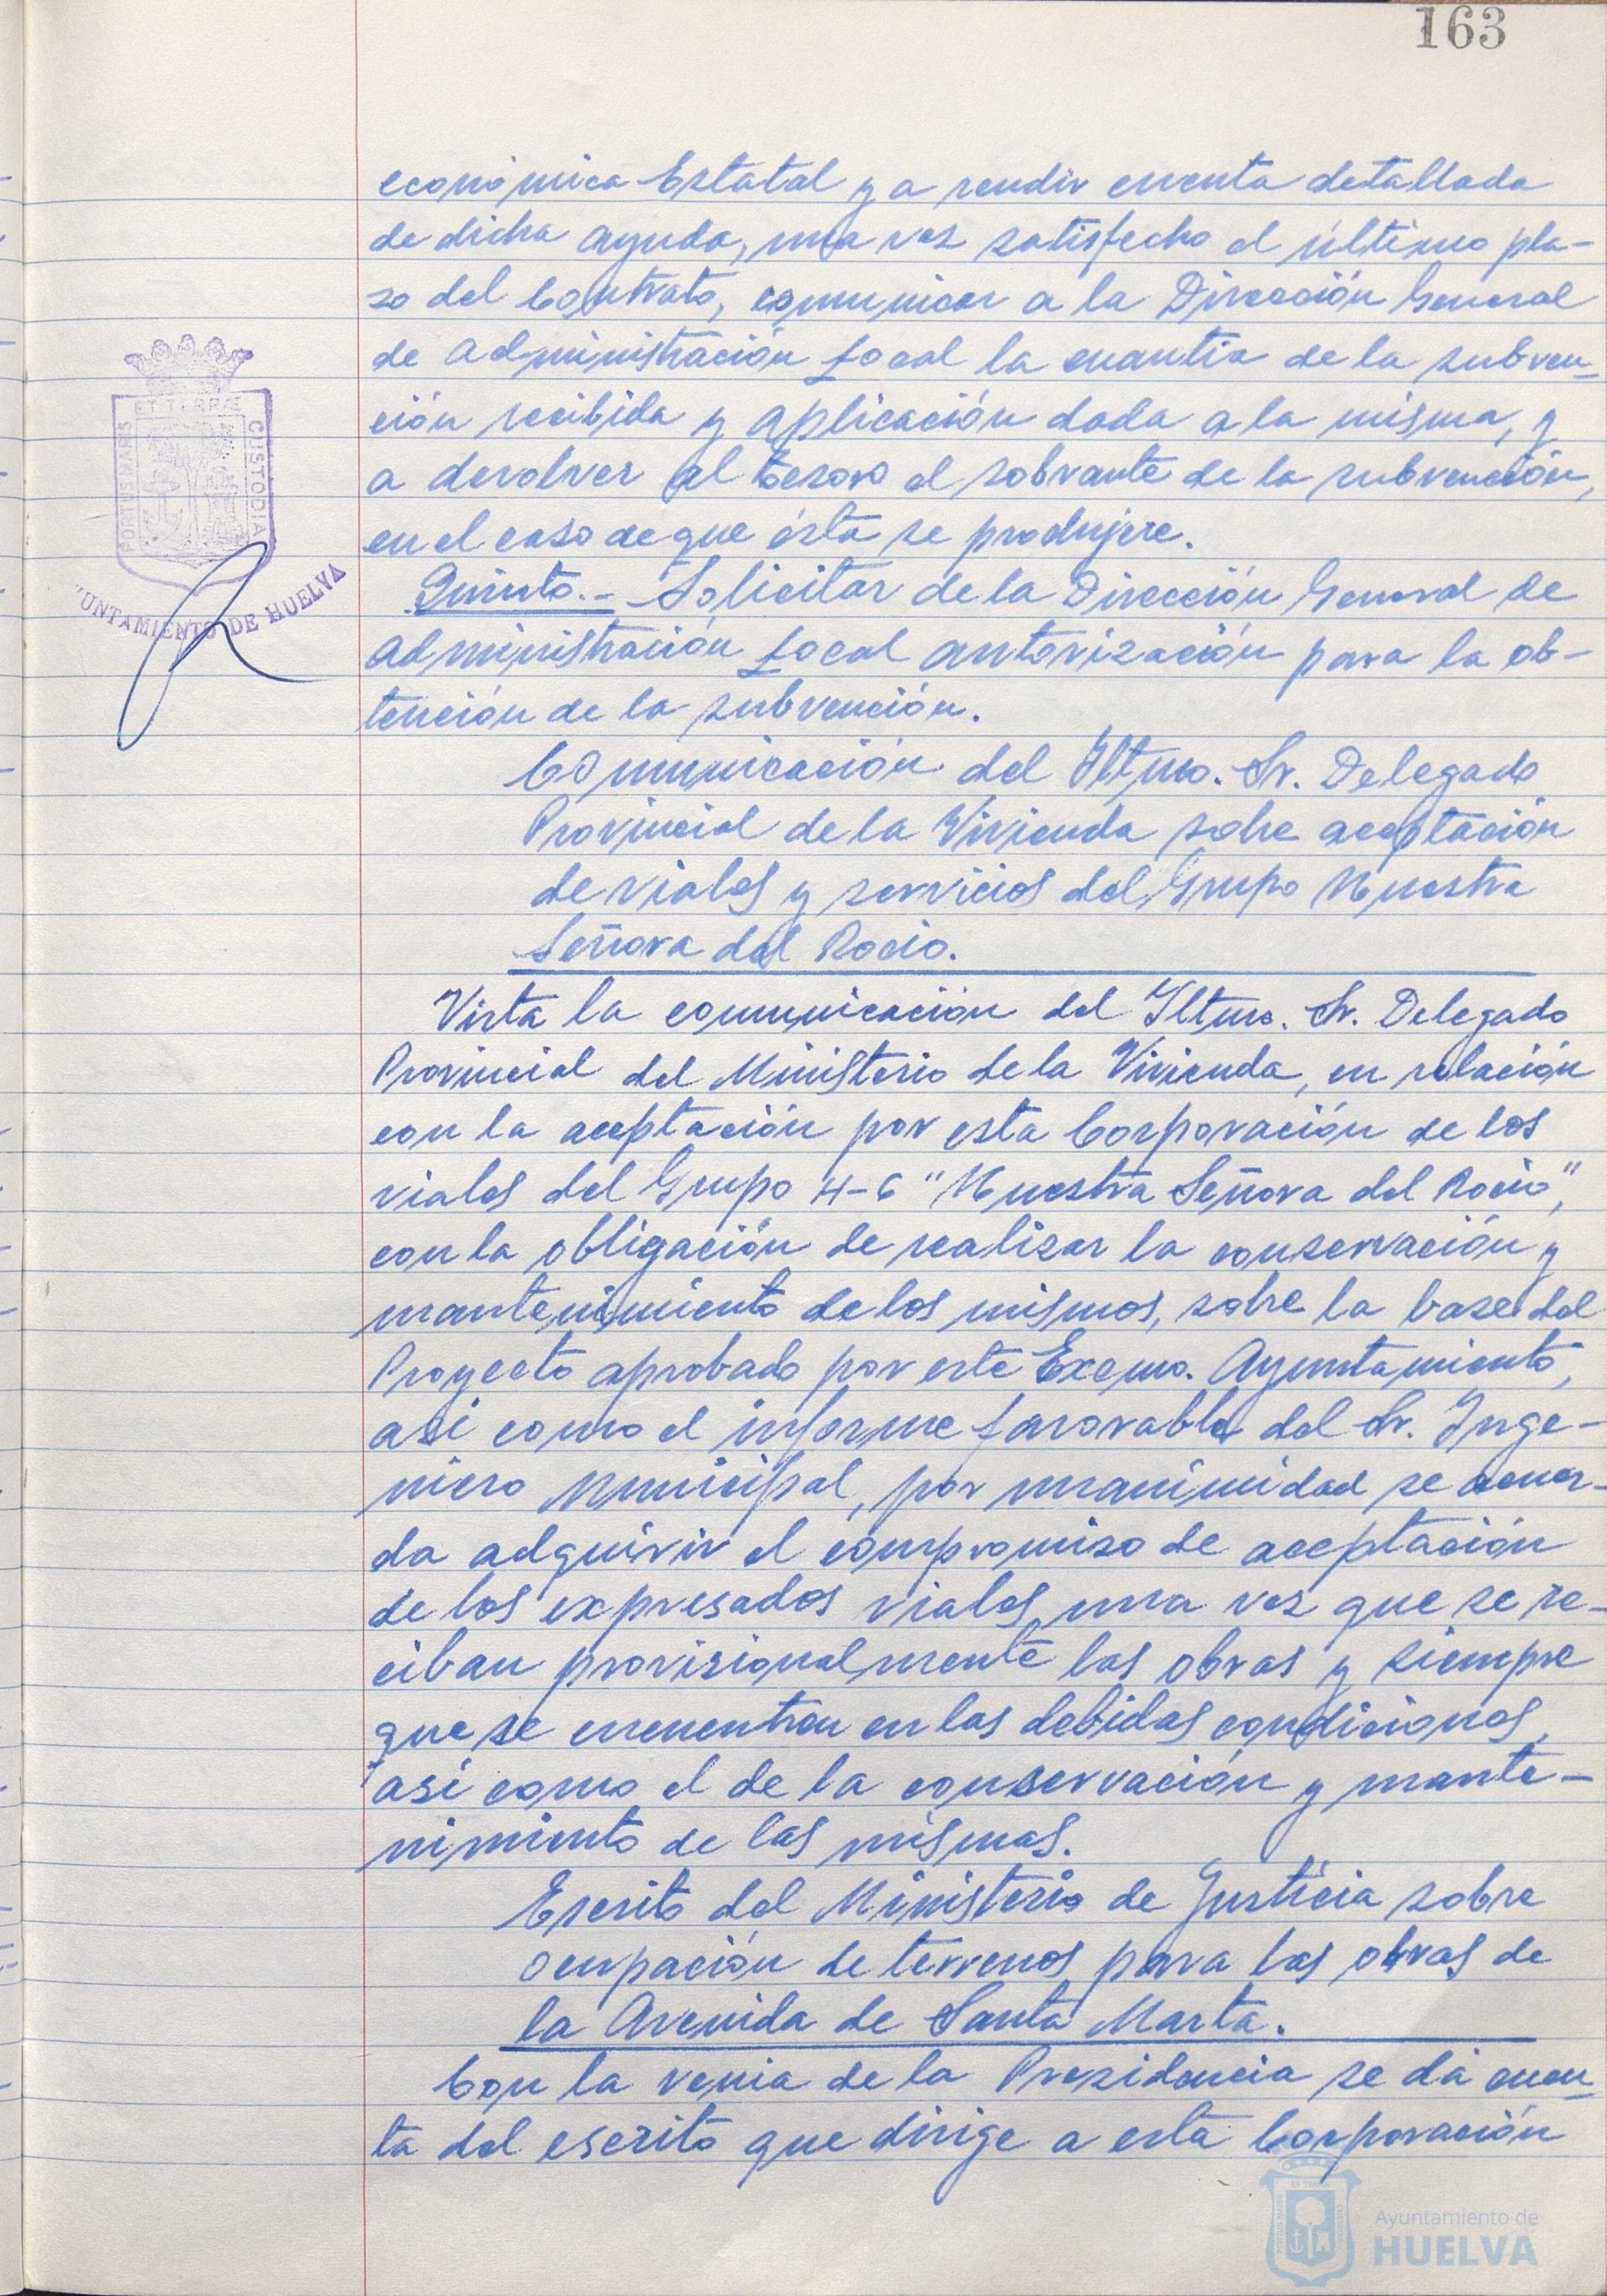 163
económica Estatal y a rendir cuenta detallada
de dicha ayuda, una vez satisfecho el último pla-
zo del Contrato, comunicar a la Dirección General
de Administración Local la cuantía de la subven-
ción recibida y aplicación dada a la misma, y
a devolver al tesoro el sobrante de la subvención,
en el caso de que ésta se produjere.
Quinto.- Solicitar de la Dirección General de
Administración Local autorización para la ob-
tención de la subvención.
Comunicación del Iltmo. Sr. Delegado
Provincial de la Vivienda sobre aceptación
de viales y servicios del Grupo Nuestra
Señora del Rocio.
Vista la comunicación del Iltmo. Sr. Delegado
Provincial del Ministerio de la Vivienda, en relación
con la aceptación por esta Corporación de los
viales del Grupo H-6 "Nuestra Señora del Rocio",
con la obligación de realizar la conservación y
mantenimiento de los mismos, sobre la base del
Proyecto aprobado por este Excmo. Ayuntamiento,
asi como el informe favorable del Sr. Inge-
niero Municipal, por unanimidad se acuer-
da adquirir el compromiso de aceptación
de los expresados viales, una vez que se re-
ciban provisionalmente las obras y siempre
que se encuentren en las debidas condiciones,
asi como el de la conservación y mante-
nimiento de las mismas.
Escrito del Ministerio de Justicia sobre
ocupación de terrenos para las obras de
la Avenida de Santa Marta.
Con la venia de la Presidencia se dá cuen-
ta del escrito que dirige a esta Corporación
PORTUS MARIS
ET TERRÆ
CUSTODIA
YUNTAMIENTO DE HUELVA
Ayuntamiento de
HUELVA